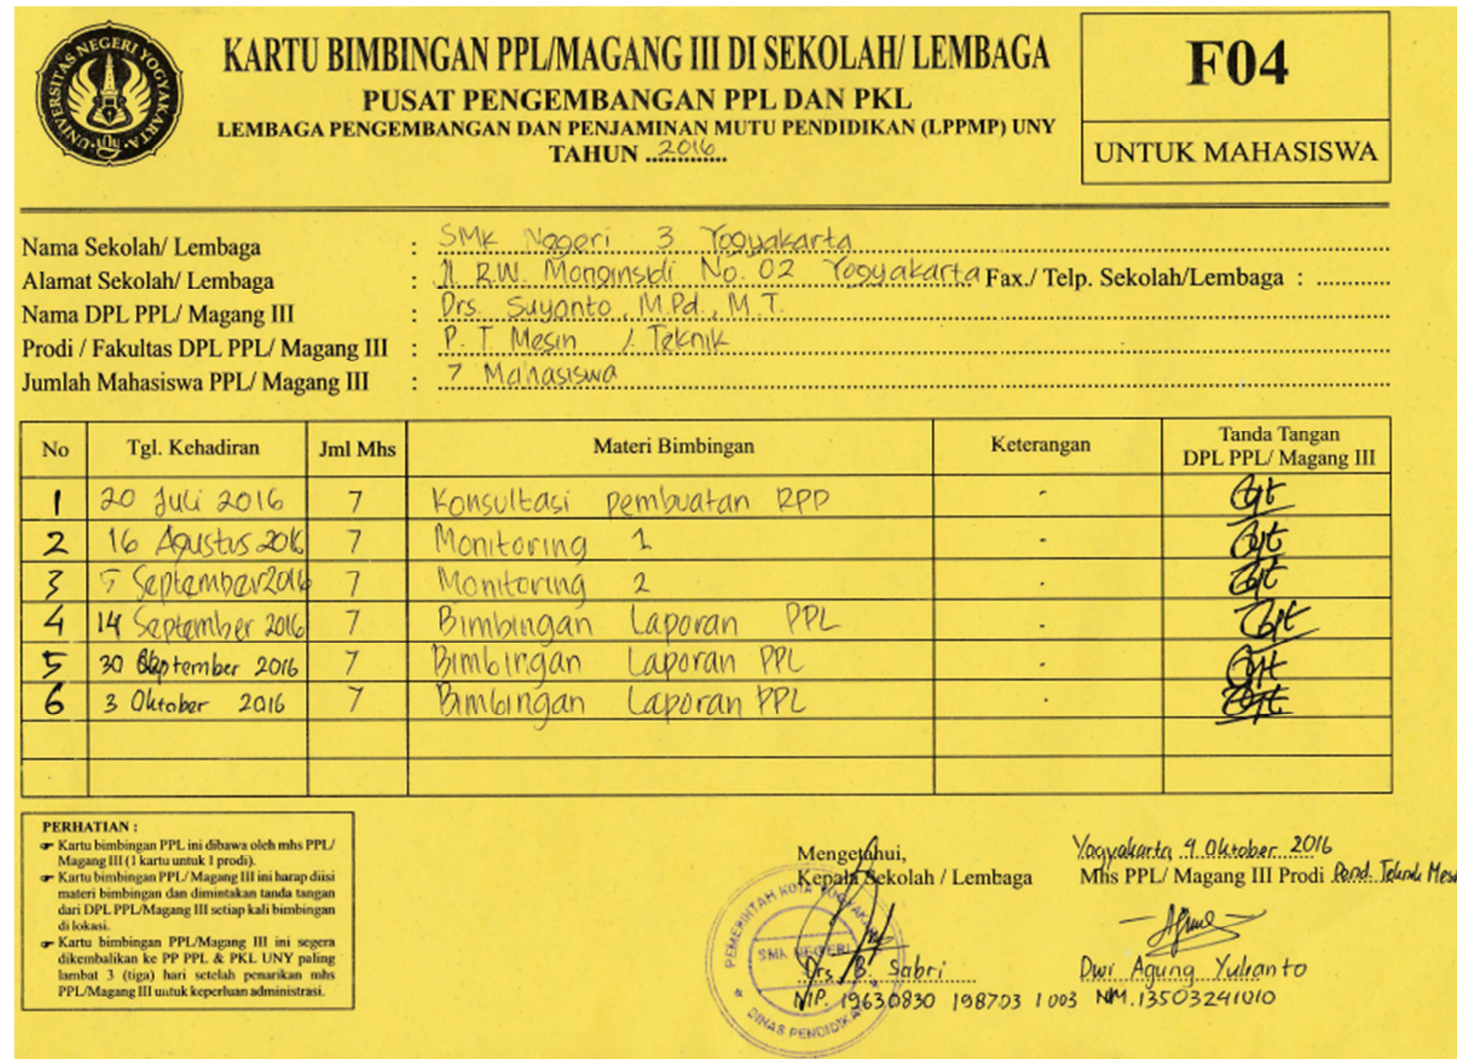 UNIVERSITAS NEGERI YOGYAKARTA
UNY
KARTU BIMBINGAN PPL/MAGANG III DI SEKOLAH/ LEMBAGA
PUSAT PENGEMBANGAN PPL DAN PKL
LEMBAGA PENGEMBANGAN DAN PENJAMINAN MUTU PENDIDIKAN (LPPMP) UNY
TAHUN 2016
F04
UNTUK MAHASISWA
Nama Sekolah/ Lembaga : SMK Negeri 3 Yogyakarta
Alamat Sekolah/ Lembaga : Jl. R.W. Monginsidi No. 02 Yogyakarta Fax./ Telp. Sekolah/Lembaga : ............
Nama DPL PPL/ Magang III : Drs. Suyanto, M.Pd., M.T.
Prodi / Fakultas DPL PPL/ Magang III : P. T. Mesin / Teknik
Jumlah Mahasiswa PPL/ Magang III : 7 Mahasiswa
No Tgl. Kehadiran Jml Mhs Materi Bimbingan Keterangan Tanda Tangan
DPL PPL/ Magang III
1 20 Juli 2016 7 Konsultasi pembuatan RPP -
2 16 Agustus 2016 7 Monitoring 1 -
3 5 September 2016 7 Monitoring 2 -
4 14 September 2016 7 Bimbingan Laporan PPL -
5 30 September 2016 7 Bimbingan Laporan PPL -
6 3 Oktober 2016 7 Bimbingan Laporan PPL -
PERHATIAN :
Kartu bimbingan PPL ini dibawa oleh mhs PPL/
Magang III (1 kartu untuk 1 prodi).
Kartu bimbingan PPL/ Magang III ini harap diisi
materi bimbingan dan dimintakan tanda tangan
dari DPL PPL/Magang III setiap kali bimbingan
di lokasi.
Kartu bimbingan PPL/Magang III ini segera
dikembalikan ke PP PPL & PKL UNY paling
lambat 3 (tiga) hari setelah penarikan mhs
PPL/Magang III untuk keperluan administrasi.
Mengetahui,
Kepala Sekolah / Lembaga
PEMERINTAH KOTA YOGYAKARTA
SMK NEGERI
DINAS PENDIDIKAN
Drs. B. Sabri
NIP. 19630830 198703 1 003
Yogyakarta, 4 Oktober 2016
Mhs PPL/ Magang III Prodi Pend. Teknik Mesi
Dwi Agung Yulianto
NIM. 13503241010